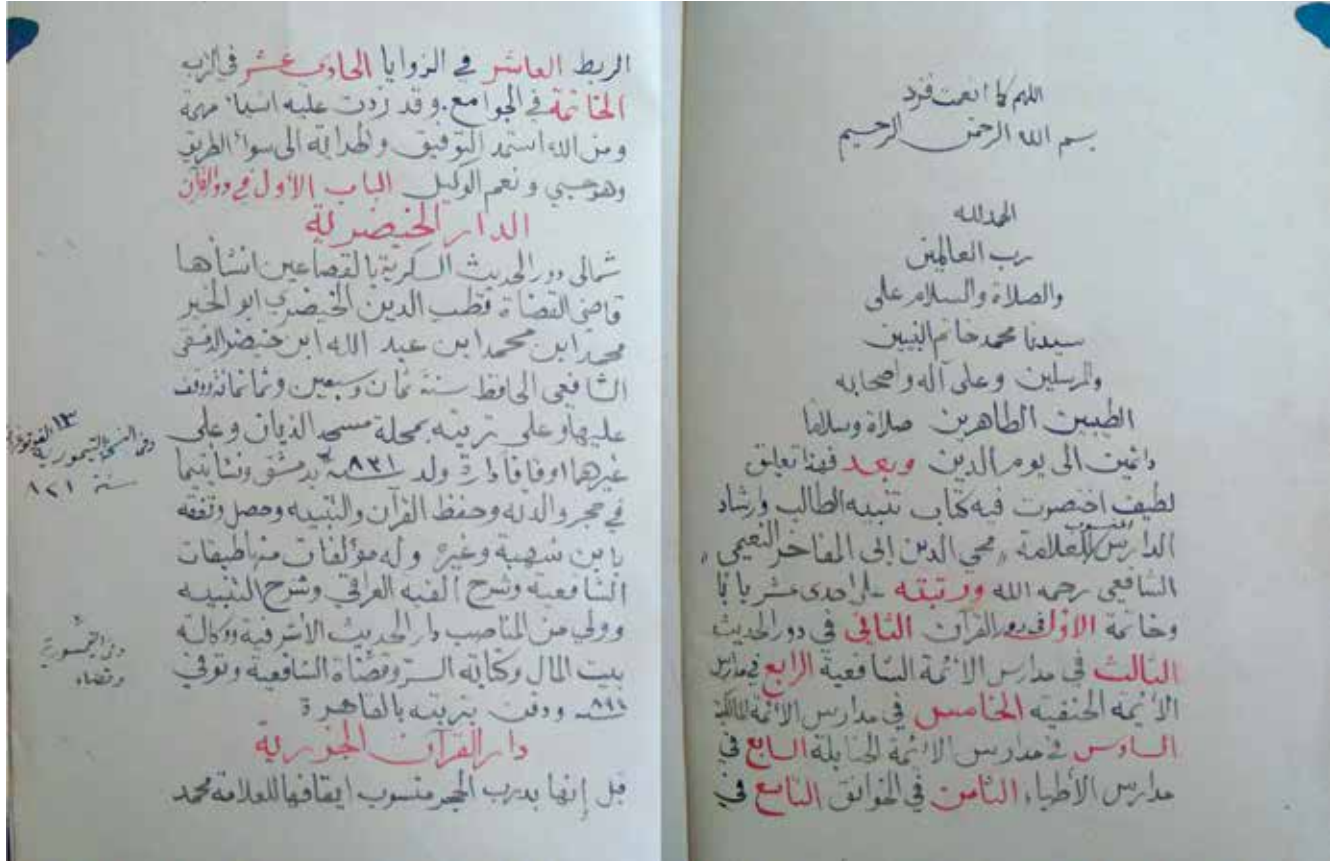 اللهم كما انعمت فزد
بسم الله الرحمن الرحيم
الحمد لله
رب العالمين
والصلاة والسلام على
سيدنا محمد خاتم النبيين
والمرسلين وعلى آله واصحابه
الطيبين الطاهرين صلاة وسلاما
دائمين الى يوم الدين وبعد فهذا تعليق
لطيف اختصرت فيه كتاب تنبيه الطالب وارشاد
الدارس المنسوب للعلامة محي الدين إلى المفاخر النعيمي
الشافعي رحمه الله ورتبته على احدى عشر بابا
وخاتمة الاول في دور القرآن الثاني في دور الحديث
الثالث في مدارس الائمة الشافعية الرابع في مدارس
الائمة الحنفية الخامس في مدارس الائمة المالكية
السادس في مدارس الائمة الحنابلة السابع في
مدارس الأطباء الثامن في الخوانق التاسع في
الربط العاشر في الزوايا الحادي عشر في الترب
الخاتمة في الجوامع وقد زدت عليه اشياء مهمة
ومن الله استمد التوفيق والهداية الى سواء الطريق
وهو حسبي ونعم الوكيل الباب الأول في دور القرآن
الدار الخيضرية
شمالي دور الحديث السكرية بالقصاعين انشأها
قاضي القضاة قطب الدين الخيضري ابو الخير
محمد ابن محمد ابن عبد الله ابن خيضر الدمشقي
الشافعي الحافظ سنة ثمان وسبعين وثمانمائة ووقف
عليها وعلى تربته بمحلة مسجد الذبان وعلى
غيرها اوقافا دارة ولد سنة ٨٢١ بدمشق ونشأ يتيما
في حجر والدته وحفظ القرآن والتنبيه وحصل وتفقه
بابن شهبة وغيره وله مؤلفات منها طبقات
الشافعية وشرح الفية العراقي وشرح التنبيه
وولي من المناصب دار الحديث الأشرفية ووكالة
بيت المال وكتابة السر وقضاة الشافعية وتوفي
سنة ٨٩٤ ودفن بتربته بالقاهرة
دار القرآن الجزرية
قبل إنها بدرب الحجر منسوب ايقافها للعلامة محمد
وفي النسخة التيمورية
سنة ٨٢١
وفي التيمورية
وقضاء